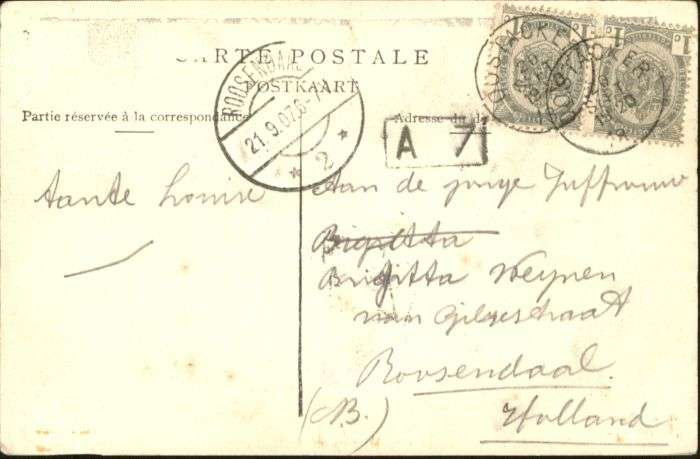 CARTE POSTALE
POSTKAART
Partie réservée à la correspondance
Adresse du de
ROOSENDAAL
21.9.07.6-7
2
OOSTACKER
OOSTACKER
1c 1c
1c 1
A 7
Tante Louise
Aan de jonge Juffrouw
Brigitta
Brigitta Weynen
van Gilsestraat
Roosendaal.
(NB.) Holland